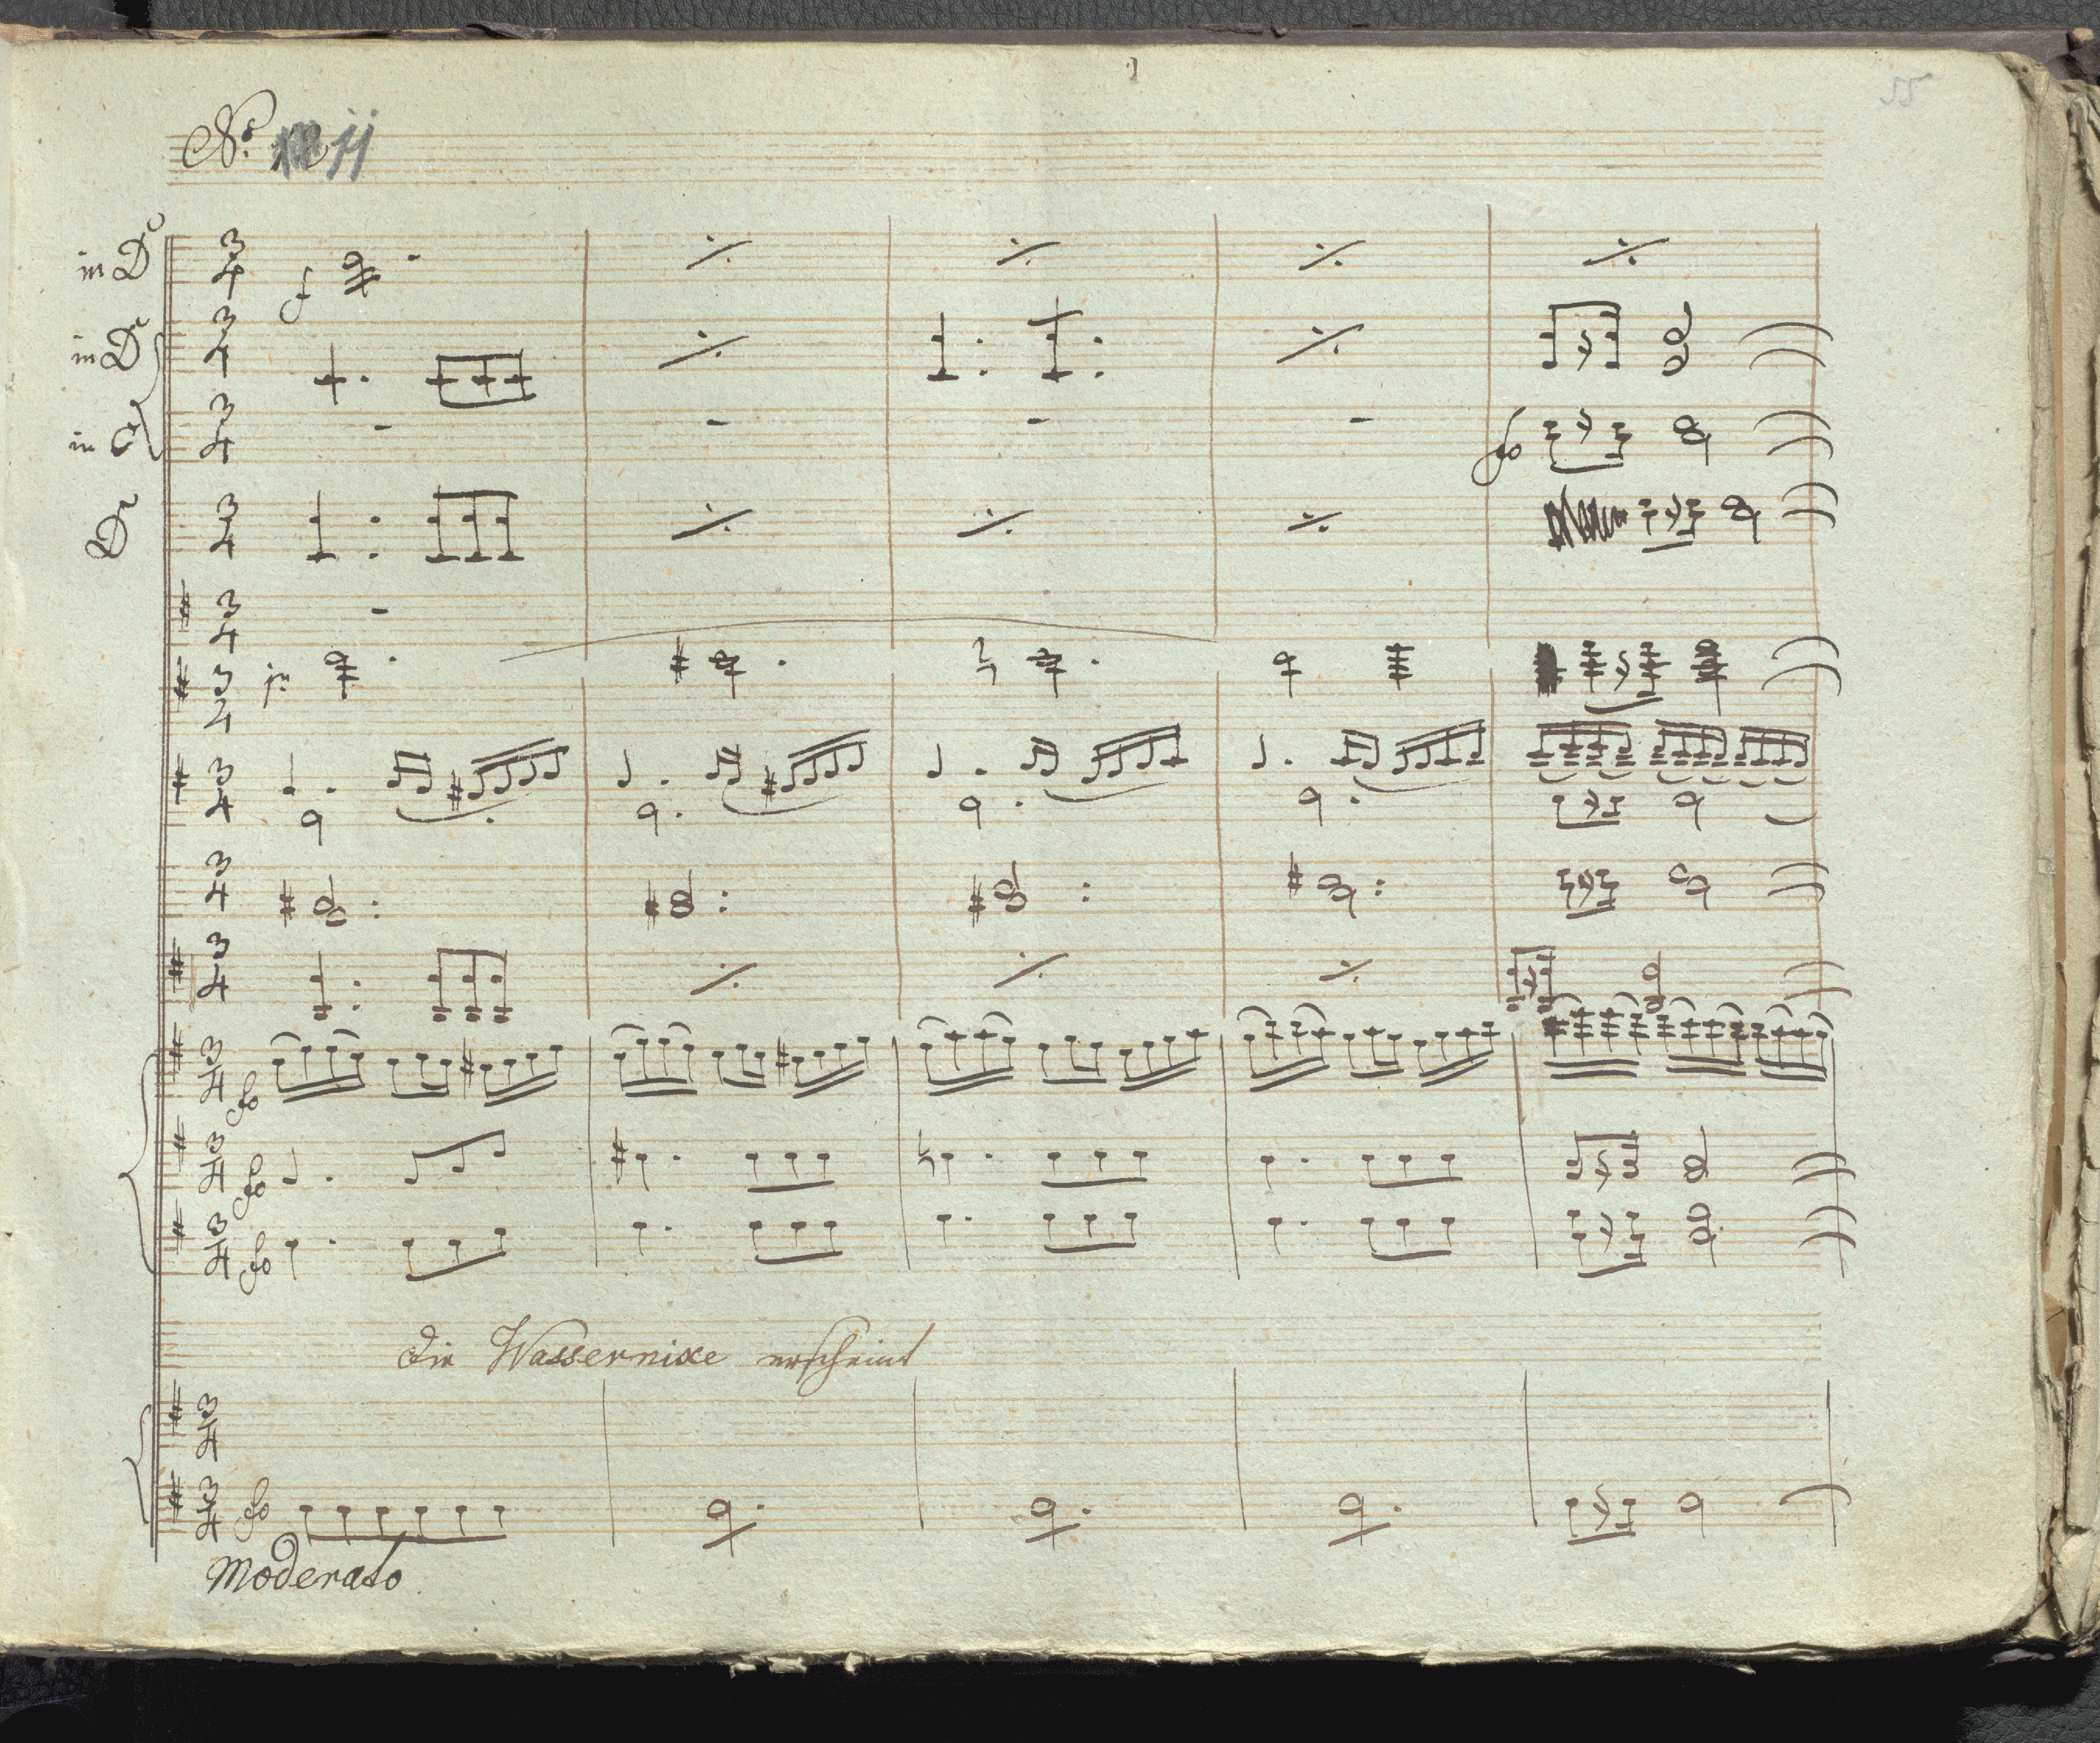 55
No. jj
in D
in D
in C
D
fo
fo
fo
fo
die Wassernixe erscheint
fo
Moderato